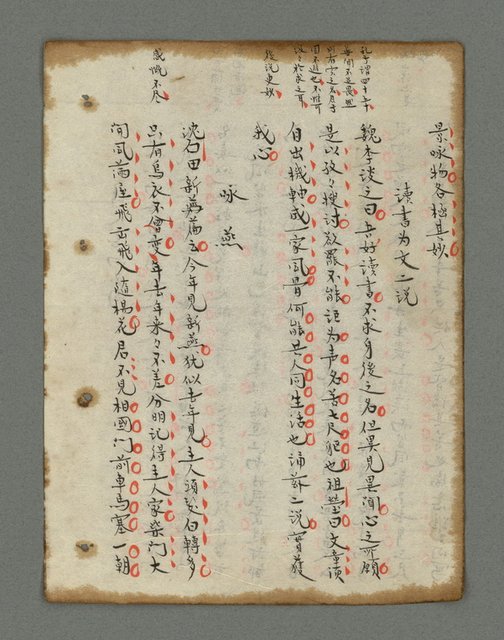 孔子謂四十五十
景咏物各極其妙
讀書為文二說
魏李琰之曰吾好讀書不求身後之名但異見異聞心之所願
是以孜々搜討欲罷不能 為声名苦七尺軀也祖瑩曰文章須
自出機軸成一家風骨何能共人同生活也誦前二說實獲
後說更妙
我心
咏燕
沈石田新燕篇云今年見新燕犹似去年見主人頭髮白轉多
只有烏衣不會变年去年來々不差分明記得主人家柴門大
感慨不尽
開風滿屋飛去飛入随楊花君不見相國門前車馬塞一朝